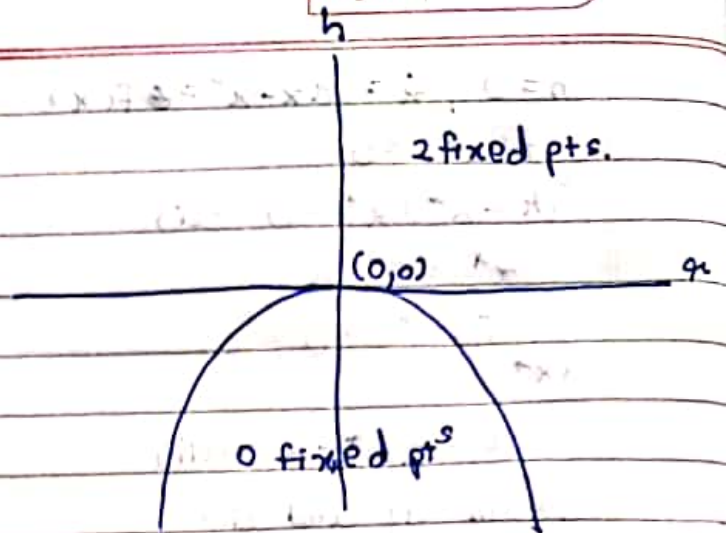 h
2 fixed pts.
(0,0)
r
0 fixed pts